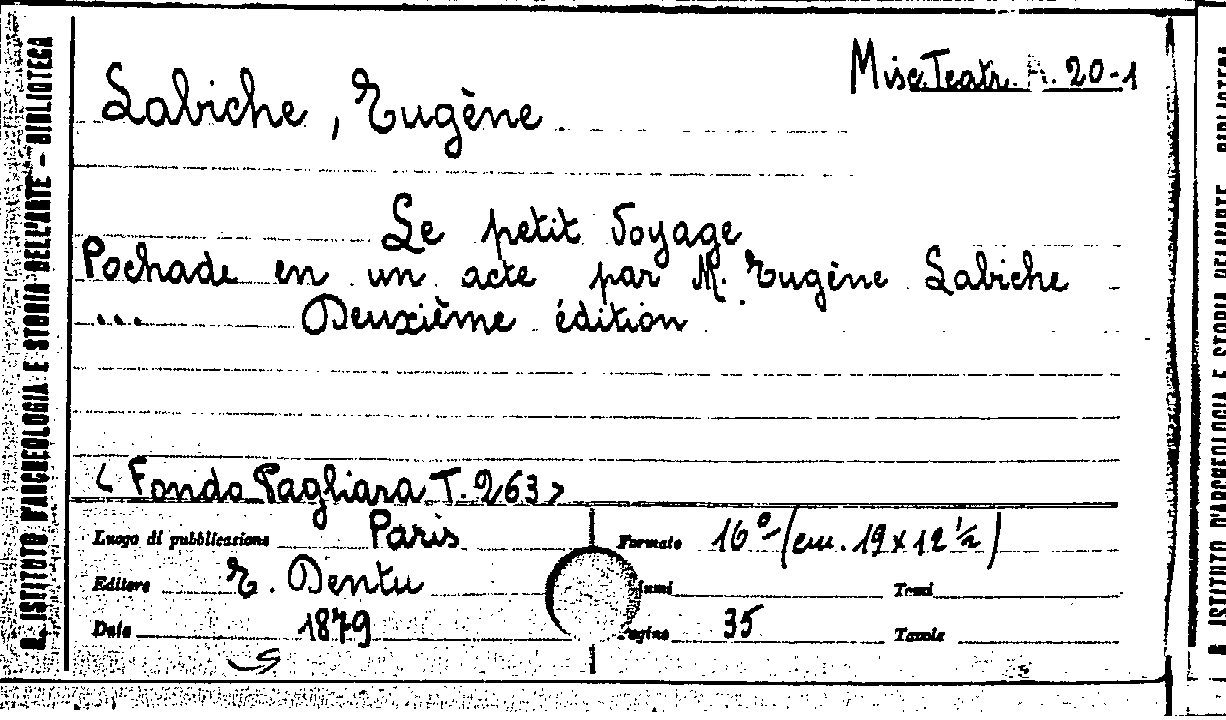 R. ISTITUTO D'ARCHEOLOGIA E STORIA DELL'ARTE - BIBLIOTECA
Misc. Teatr. A. 20-1
Labiche, Eugène
Le petit Voyage
Pochade en un acte par M. Eugène Labiche
... Deuxième édition
< Fondo Pagliara T. 263 >
Luogo di pubblicazione Paris
Formato 16° (cm. 19 x 12 ½)
Editore E. Dentu
lumi Tomi
Data 1879
agine 35 Tavole
R. ISTITUTO D'ARCHEOLOGIA E STORIA DELL'ARTE BIBLIOTECA